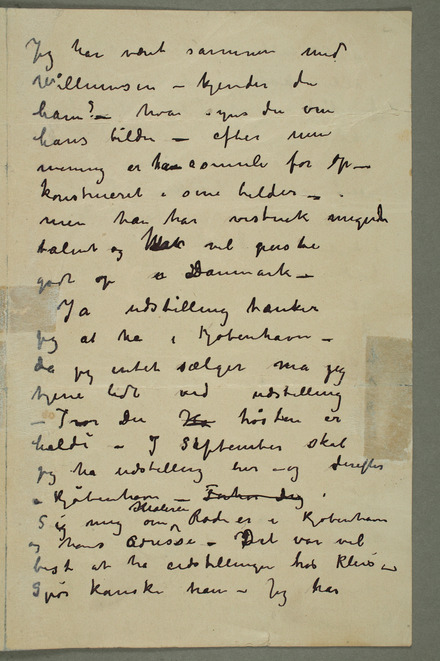 Jeg har været sammen med
Willumsen – kjender du
ham? – hvad synes du om
hans bilder – efter min
mening er han somme for op–
konstrueret i sine bilder –
men han har virkelig meget
talent og vil
godt op i Danmark –
Ja udstilling tænker
jeg at ha i Kjøbenhavn –
da jeg intet sælger må jeg
tjene lidt ved udstilling
– Tror Du høsten er
heldi – I September skal
jeg ha udstilling her – og derefter
i Kjøbenhavn –
Sig mig om Maleren Rode er i Kjøbenhavn
og hans adresse – Det var vel
best at ha udstillingen hos Kleis –
Spør kanske ham – Jeg har